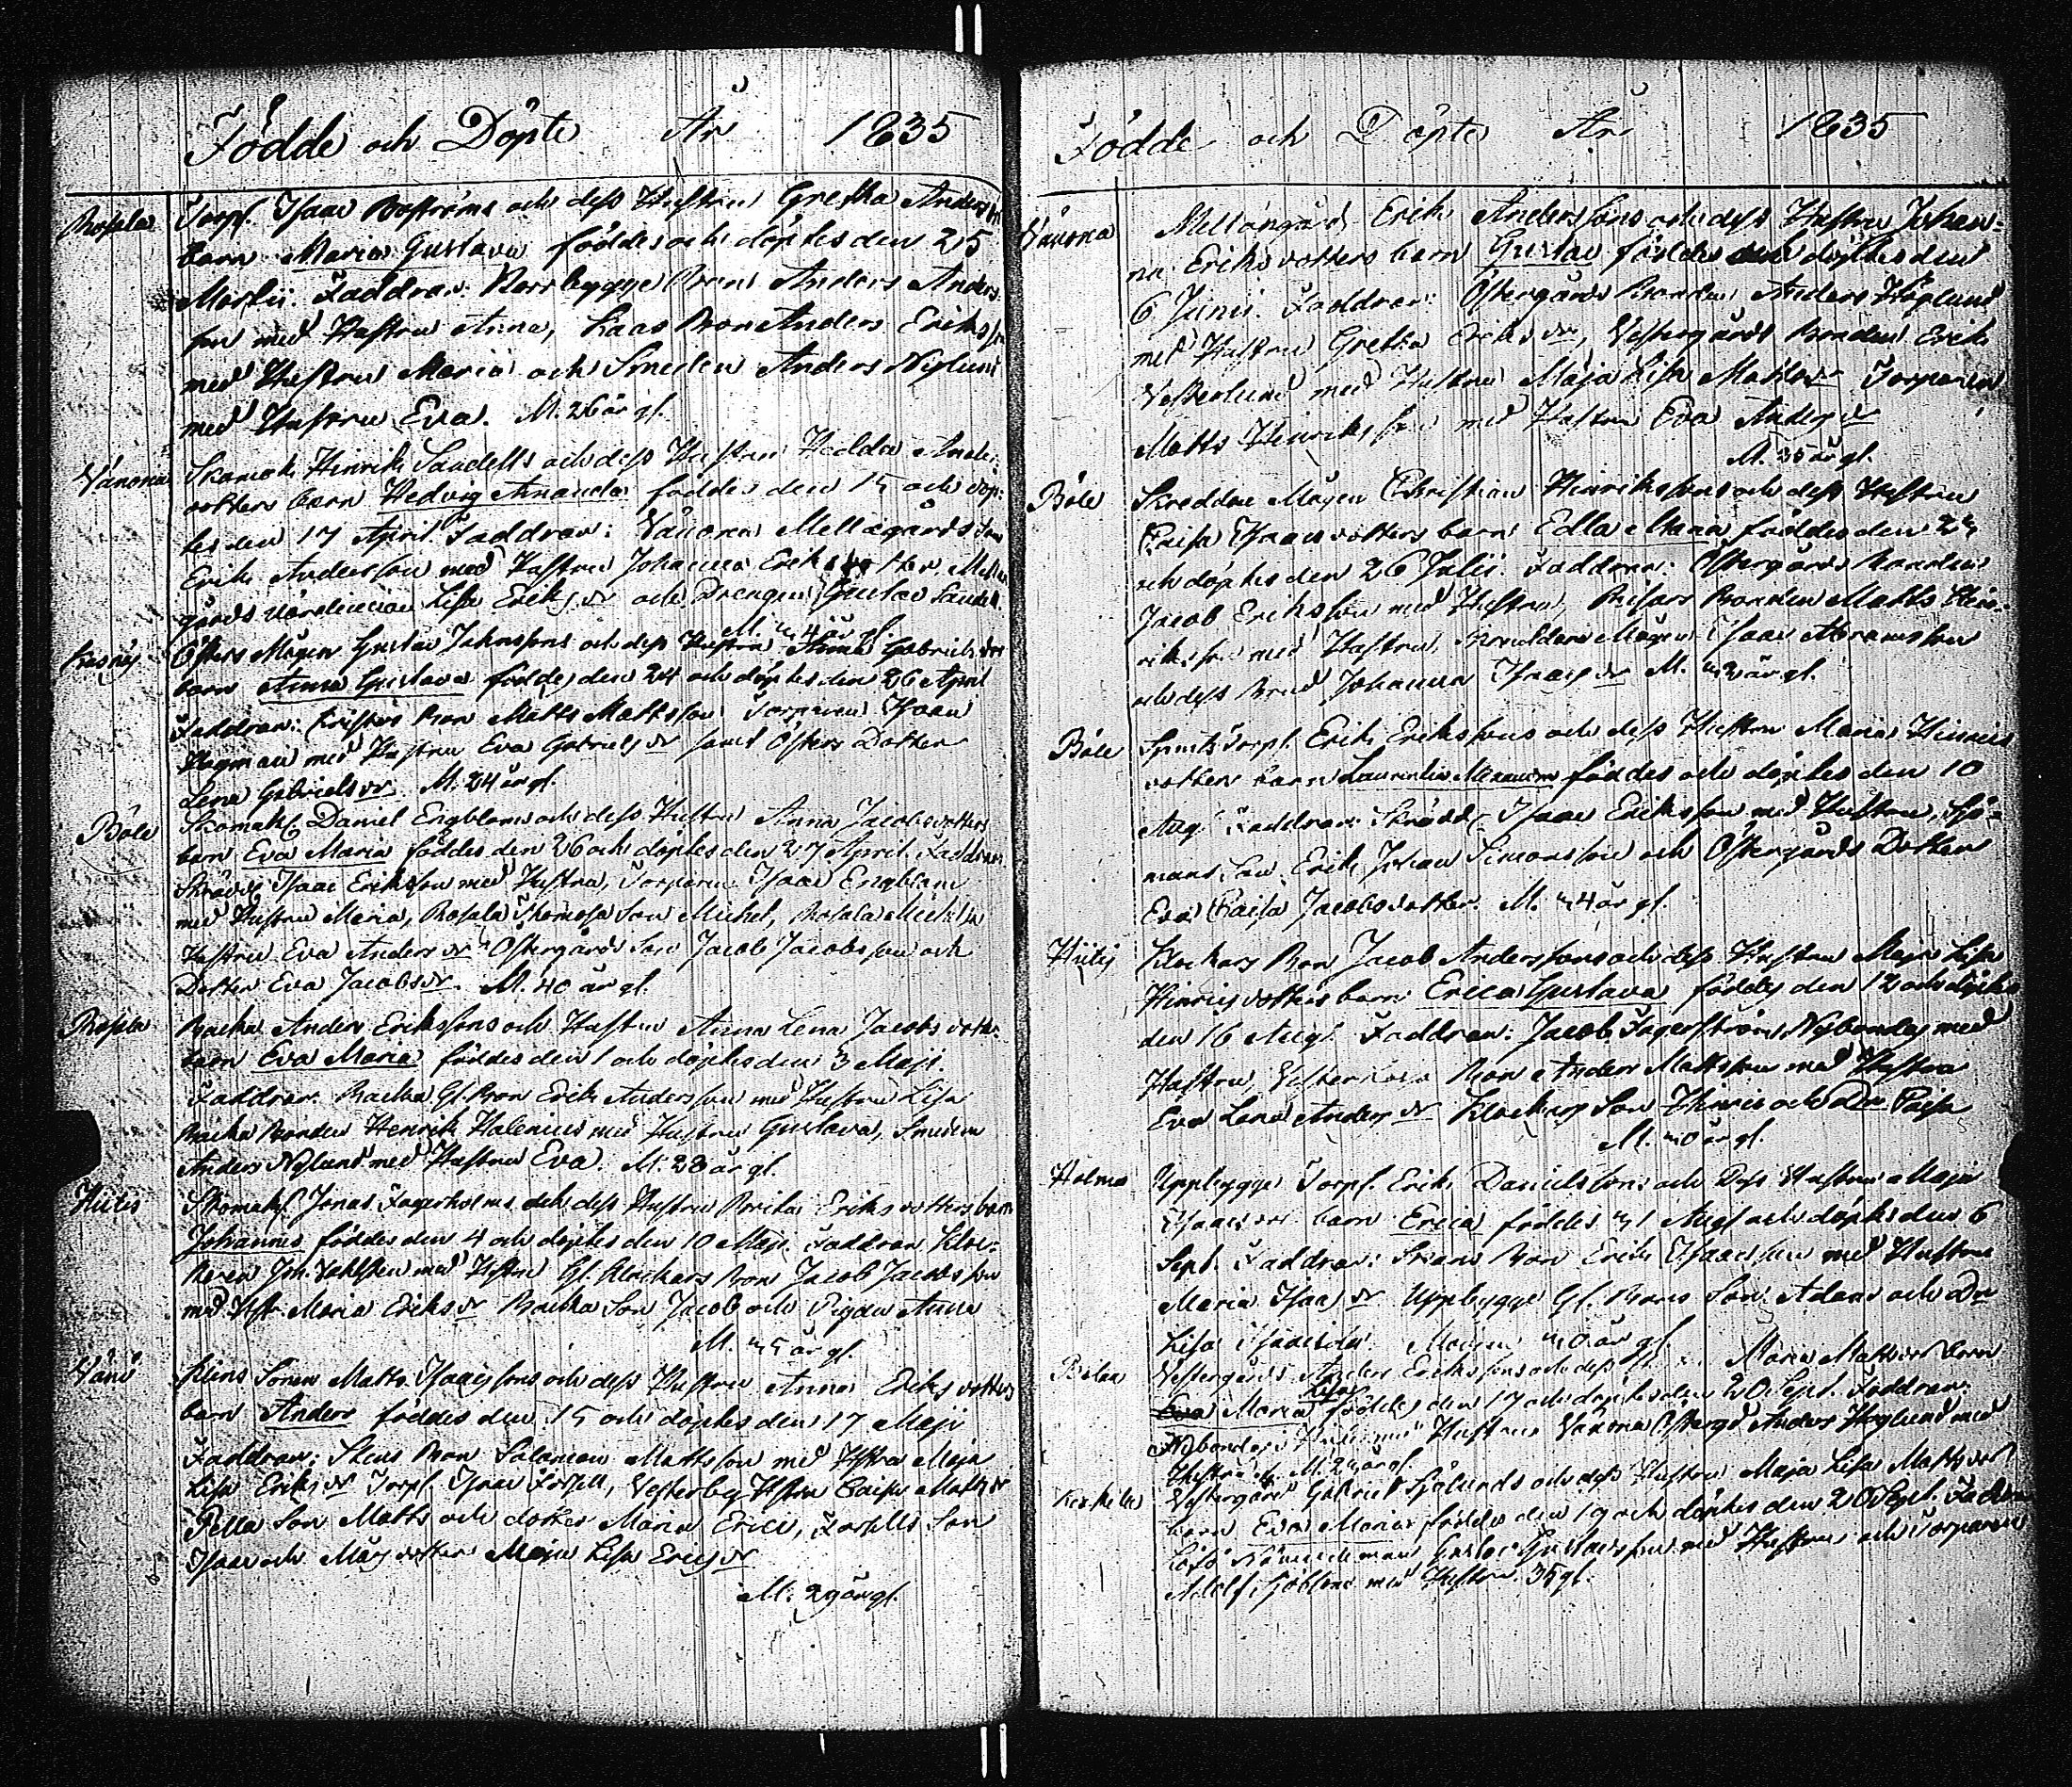 Födde och Döpte År 1835
Rosala Torp. Isaac Boströms och dess Hustru Gretha Anders
barn Maria Gustava föddes och döptes den 25
Martii. Faddrar: Norrbygge Bon Anders Anders
son med Hustru Anna, Laas Bon Anders Eriksson
med Hustru Maria och Smeden Anders Nylund
med Hustru Eva. M. 26 år gl.
Vänoxa Skomak Hinrik Sandells och dess Hustru Hedda Anders
dotters barn Hedvig Amanda föddes den 15 och döp-
tes den 17 April. Faddrar: Vänoxa Mellangårds
Erik Andersson med Hustru Johanna Eriksdotter, Mellan
gårds värdinnan Lisa Eriksdr och Drengen Gustav Sandell.
M. 44 år gl.
Östers Mågen Gustav Johnssons och dess Hustru Anna Gabrielsdr
barn Anna Gustava föddes den 24 och döptes den 26 April
Faddrar: Bon Matts Mattsson Torparen Isaac
Hagman med Hustru Eva Gabrielsdr samt Östers Dotter
Lena Gabrielsdr. M. 24 år gl.
Böle Skomak. Daniel Engbloms och dess Hustru Anna Jacobsdotters
barn Eva Maria föddes den 26 och döptes den 27 April. Faddrar:
Skrädd. Isaac Eriksson med Hustru, Torparen Isaac Engblom
med Hustru Maria, Rosala Son Michel, Rosala
Hustru Eva Andersdr Östergårds Son Jacob Jacobsson och
Dotter Eva Jacobsdr. M. 40 år gl.
Rosala Backa Anders Erikssons och Hustru Anna Lena Jacobsdotters
barn Eva Maria föddes den 1 och döptes den 3 Maji.
Faddrar. Backa Gl. Bon Erik Andersson med Hustru Lisa
Backa Bonden Henrik Halenius med Hustru Gustava, Smeden
Anders Nylund med Hustru Eva. M. 28 år gl.
Hitis Skomak. Jonas Fagerholms och dess Hustru Brita Eriksdotters barn
Johannes föddes den 4 och döptes den 10 Maji. Faddrar Kloc-
karen med Hustru Gl. Klockars Bon Jacob Jacobsson
med Hustr. Maria Eriksdr Backa Son Jacob och Pigan Anna
M. 45 år gl.
Vänö Sonen Matts Isaacssons och dess Hustru Anna Eriksdotters
barn Anders föddes den 15 och döptes den 17 Maji
Faddrar: Bon Salomon Mattsson med Hustru Maja
Lisa Eriksdr Torp. Isaac Forsell, Vesterby Hustru Caisa Mattsdr
Pella Son Matts och dotter Maria Erici, Forsells Son
Isaac och dotter Maja Lisa Ericsdr
M. 29 år gl.
Födde och Döpte År 1835
Vänoxa Mellangård Erik Anderssons och dess Hustru Johan-
na Eriksdotters barn Gustav föddes och döptes den
6 Junii. Faddrar: Östergårds Bonden Anders Höglund
med Hustru Gretha Eriksdr, Vestergårds Bonden Erik
Vesterlund med Hustru Maja Lisa Mattsdr Torparen
Matts Henriksson med Hustru Eva Andersdr
M. 35 år gl.
Böle Skreddare Mågen Christian Henrikssons och dess Hustru
Caisa Isaacsdotters barn Edla Maria föddes den 25
och döptes den 26 Julii. Faddrar: Östergårds Bonden
Jacob Eriksson med Hustru, Bonden Matts Hin-
riksson med Hustru, Skreddare Mågen Isaac Abramsson
och dess Brud Johanna Isaacsdr M. 42 år gl.
Böle Torp. Erik Erikssons och dess Hustru Maria Hinrics
dotters barn föddes och döptes den 10
Aug. Faddrar: Skrädd. Isaac Eriksson med Hustru, Sjö-
mans Son Erik Johan Simonsson och Östergårds Dotter
Eva Caisa Jacobsdotter. M. 44 år gl.
Hitis Klockars Bon Jacob Anderssons och dess Hustru Maja Lisa
Hinricsdotters barn Erica Gustava föddes den 12 och döptes
den 16 Aug. Faddrar: Jacob Fagerström, med
Hustru, Bon Anders Mattsson med Hustru
Eva Lena Andersdr Klockars Son Hinric och Dr Caisa
M. 40 år gl.
Holma Uppbygge Torp. Erik Danielssons och Dess Hustru Maja
Isaacsdr barn Erica föddes 31 Aug och döptes den 6
Sept. Faddrar: Bon Erik Isaacsson med Hustru
Maria Isaacsdr Uppbygge Gl. Bons Son Adam och Dr
Lisa 40 år gl.
Vestergårds Anders Erikssons och dess Maria Mattsdr barn
Maria Lisa föddes den 17 och döptes den 20 Sept. Faddrar:
Hustru Vänoxa Östergd Anders Höglund med
Hustru
Vestergård Gabriel Sjölunds och dess Hustru Maja Lisa Mattsdr
barn Eva Maria föddes den 19 och döptes den 20 Sept. Faddrar
Gustav Gustavsson med Hustru och Torparen
Adolf Sjöblom med Hustru. 35 gl.